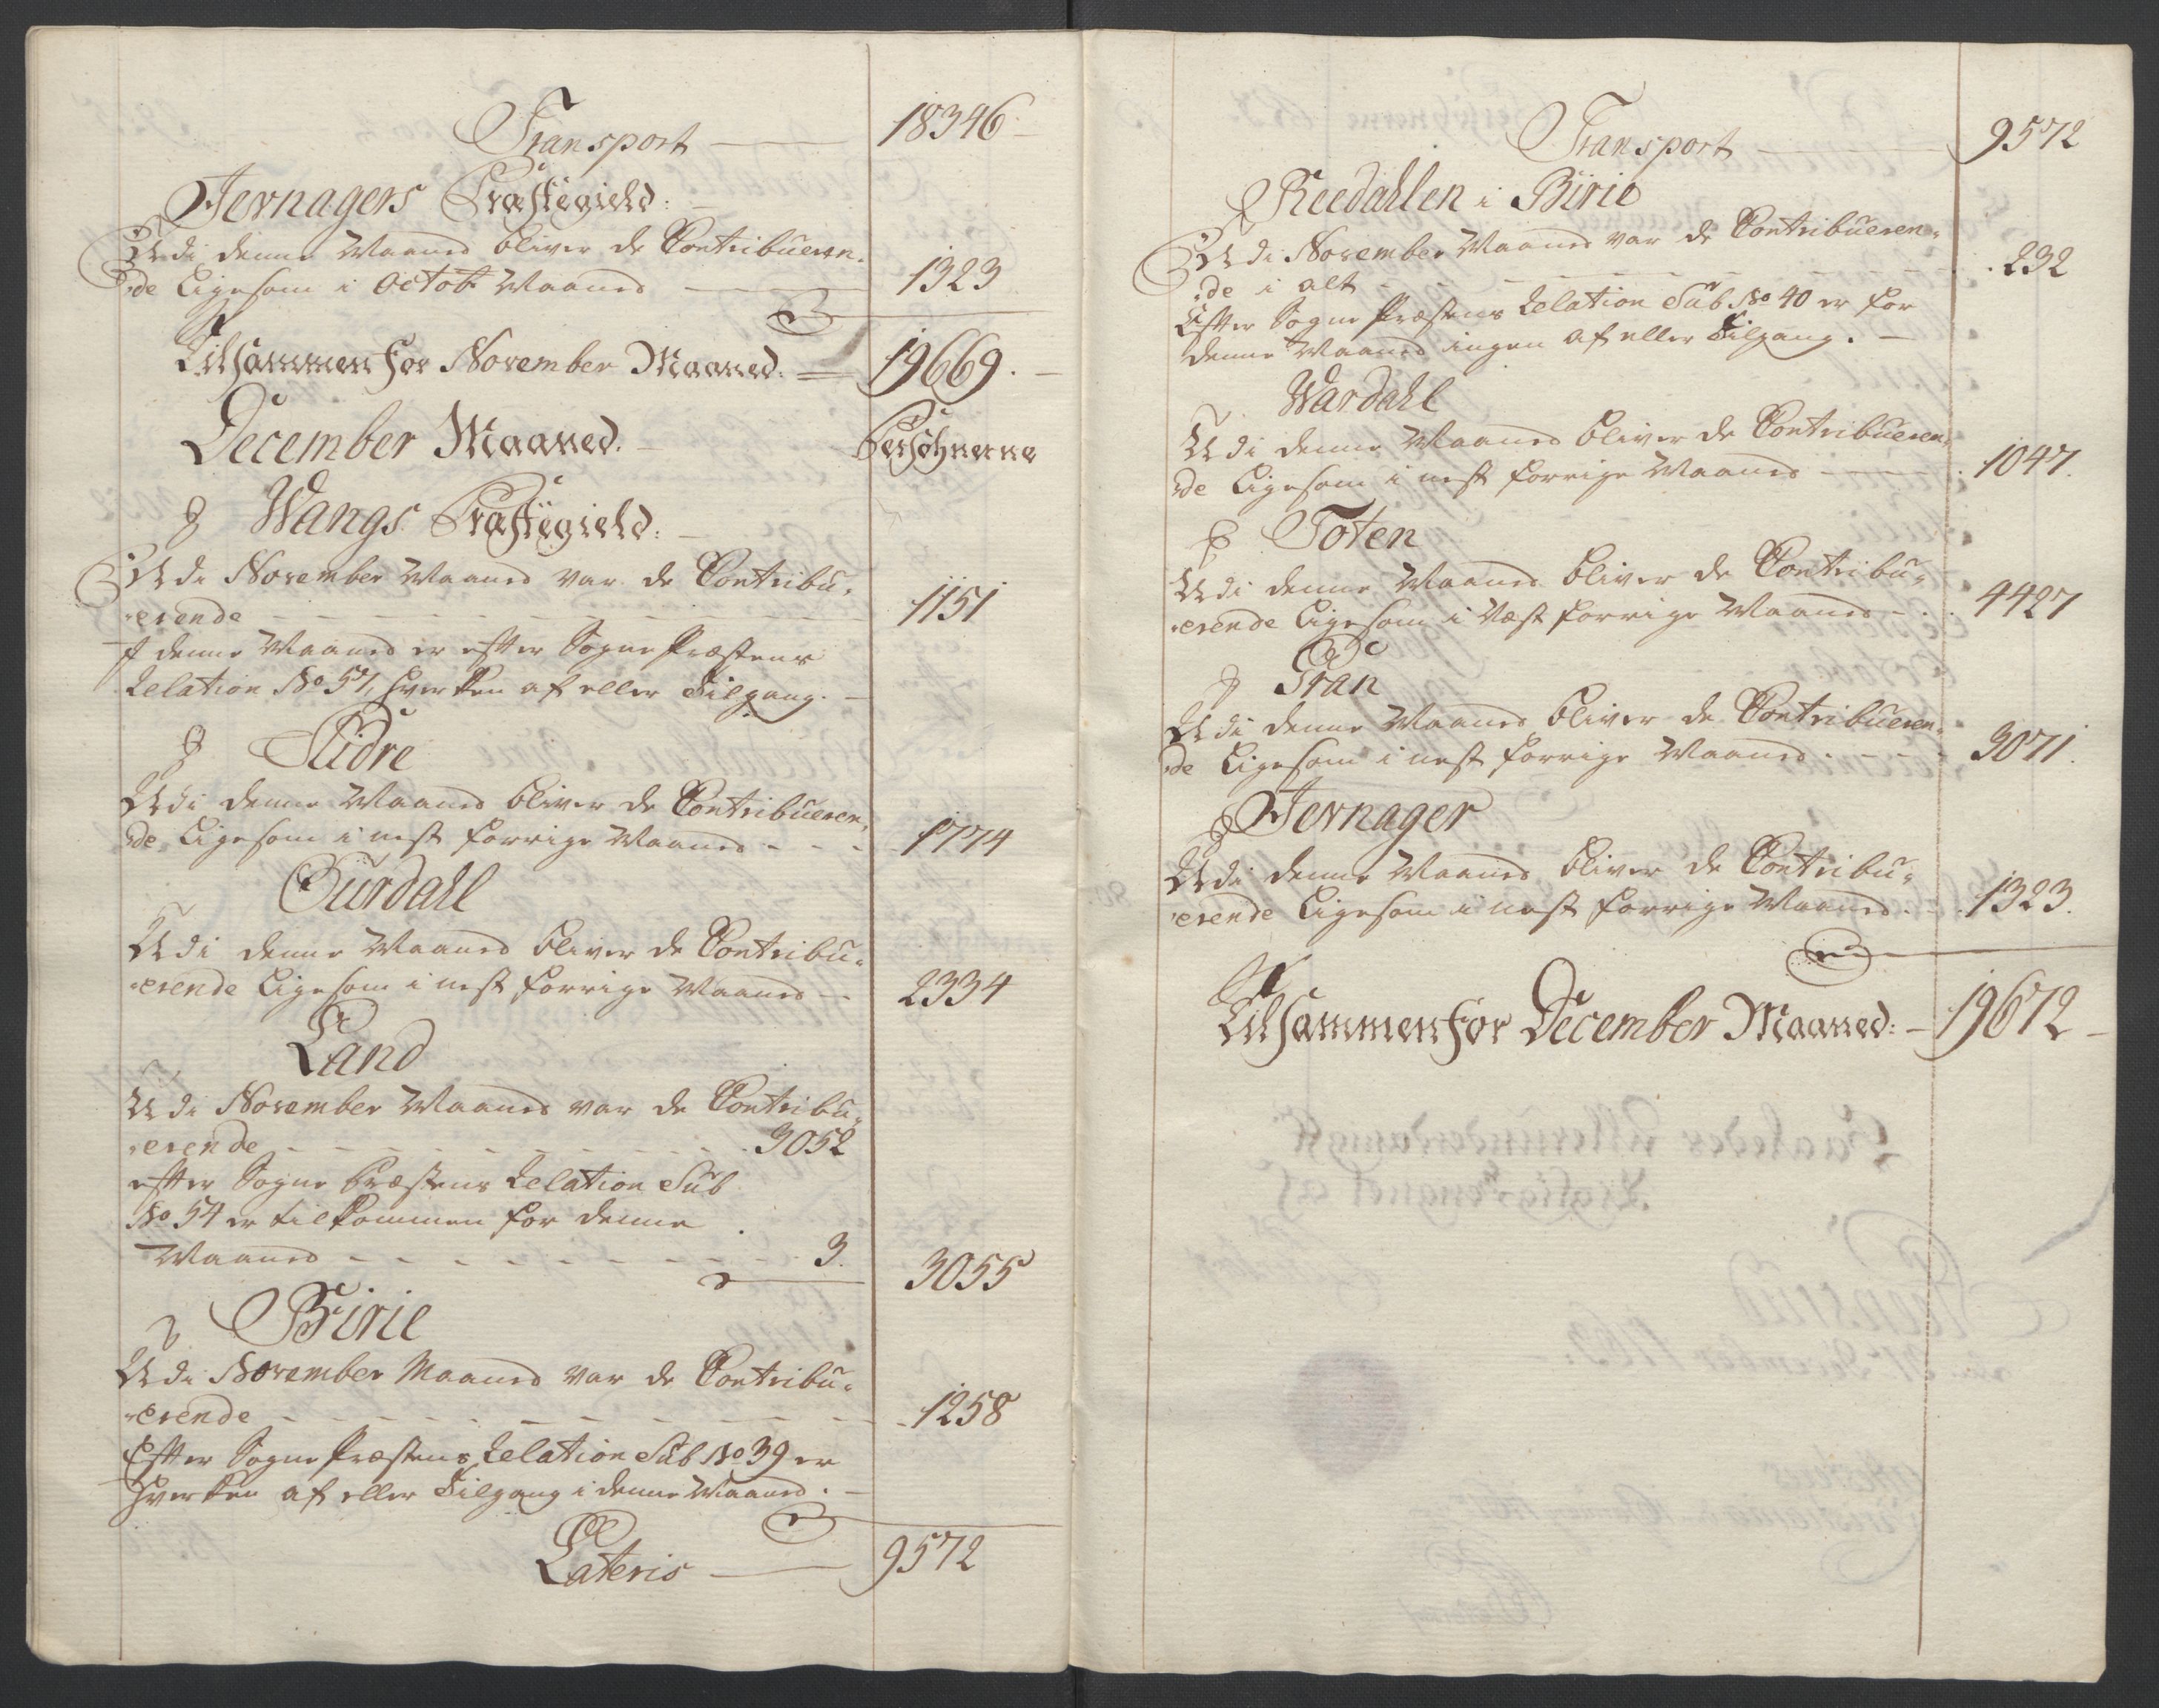 Transport — 18346
Jevnagers Præstegield:
Udi denne Maaned bliver de Contribueren-
de Ligesom i Octob: Maaned — 1323
Tilsammen for November Maaned. — 19669.
December Maaned. — Persohnerne
Wangs Præstegield:
Udi November Maaned var de Contribu-
erende — 1151
I denne Maaned er efter Sogne Præstens
Relation No 57, hverken af eller Tilgang. —
Slidre
Udi denne Maaned bliver de Contribueren-
de Ligesom i nest forrige Maaned — 1774
Ourdahl
Udi denne Maaned bliver de Contribu-
erende Ligesom i nest forrige Maaned — 2334
Land
Udi November Maaned var de Contribu-
erende — 3052
efter Sogne Præstens Relation Sub
No 54 er tilkommen for denne
Maaned — 3. 3055
Birie
Udi November Maaned var de Contribu-
erende — 1258
Efter Sogne Præstens Relation Sub No 39 er
hverken af eller Tilgang i denne Maaned. —
Lateris — 9572
Transport — 9572
Reedahlen i Birie
Udi November Maaned var de Contribueren-
de i alt — 232
Efter Sogne Præstens Relation Sub No 40 er for
denne Maaned ingen af eller Tilgang. —
Wardahl
Udi denne Maaned bliver de Contribueren-
de Ligesom i nest forrige Maaned — 1047.
Toten
Udi denne Maaned bliver de Contribu-
erende Ligesom i Næst forrige Maaned — 4427
Gran
Udi denne Maaned bliver de Contribueren-
de Ligesom i nest forrige Maaned — 3071.
Jevnager
Udi denne Maaned bliver de Contribu-
erende Ligesom i nest forrige Maaned. — 1323.
Tilsammen for December Maaned: — 19672 —